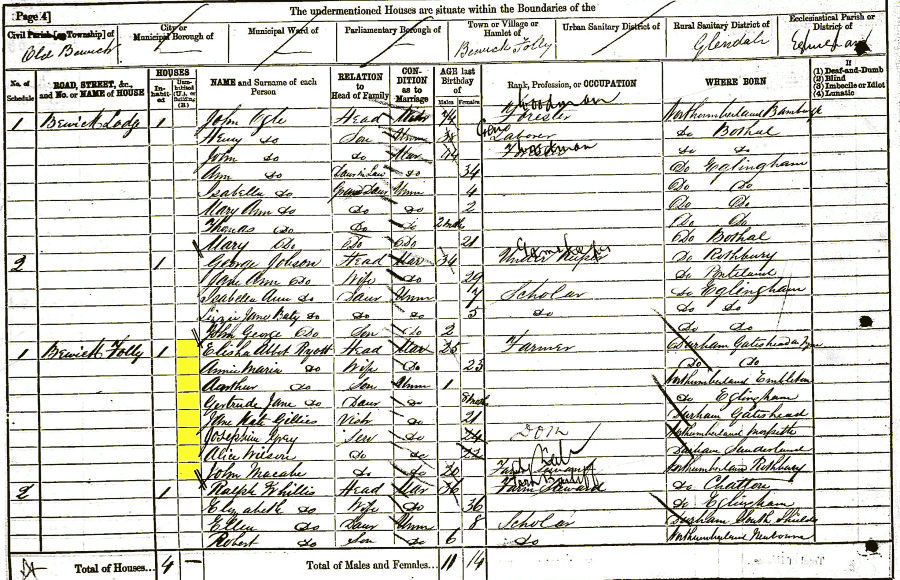 Page 4]
The undermentioned Houses are situate within the Boundaries of the
Civil Parish [or Township] of
Old Bewick
City or Municipal Borough of
Municipal Ward of
Parliamentary Borough of
Town or Village or Hamlet of
Bewick Folly
Urban Sanitary District of
Rural Sanitary District of
Glendale
Ecclesiastical Parish or District of
No. of Schedule
ROAD, STREET, &c., and No. or NAME of HOUSE
HOUSES
Inhabited
Uninhabited (U.), or Building (B.)
NAME and Surname of each Person
RELATION to Head of Family
CONDITION as to Marriage
AGE last Birthday of
Males
Females
Rank, Profession, or OCCUPATION
WHERE BORN
If
(1) Deaf-and-Dumb
(2) Blind
(3) Imbecile or Idiot
(4) Lunatic
1 Bewick Lodg 1 John Ogle Head Mar 74 Woodman Forester Northumberland
Henry do Son Unm Laborer Do Bothal
John do do Mar Woodman do do
Ann do Daur in Law do 34 Do Eglingham
Isabella do Grand Daur Unm 4 Do Do
Mary Ann do Do do 2 Do Do
Thomas do Do do Do Do
Mary Do Do Do 21 Do Bothal
2 1 George Jobson Head Mar 34 Gamekeeper Under Keeper Do Rothbury
Jane Ann Do Wife Do 29 Do
Isabella Ann do Daur Unm 7 Scholar do Eglingham
Lizzie Jane do do do 5 do do do
John George Do Son Do 2 do do
1 Bewick Folly 1 Elisha Abbot Ryott Head Mar 25 Farmer Durham Gateshead on Tyne
Annie Maria do Wife Do 23 Do Do
Arthur Do Son Unm 1 Northumberland Embleton
Gertrude Jane do Daur do do Eglingham
Jane Kate Gillies do 21 Durham Gateshead
Josephine Gray Ser do 24 Northumberland Morpeth
Alice Wilson Do do 22 Durham Sunderland
John Macabe Do do 20 Servant Northumberland Rothbury
2 1 Ralph Whillis Head Mar 36 Farm Steward do Chatton
Elizabeth do Wife do 36 Do Eglingham
Ellen do Daur Unm 8 Scholar Durham South Shields
Robert do Son do 6 do Northumberland
Total of Houses... 4 –
Total of Males and Females... 11 14